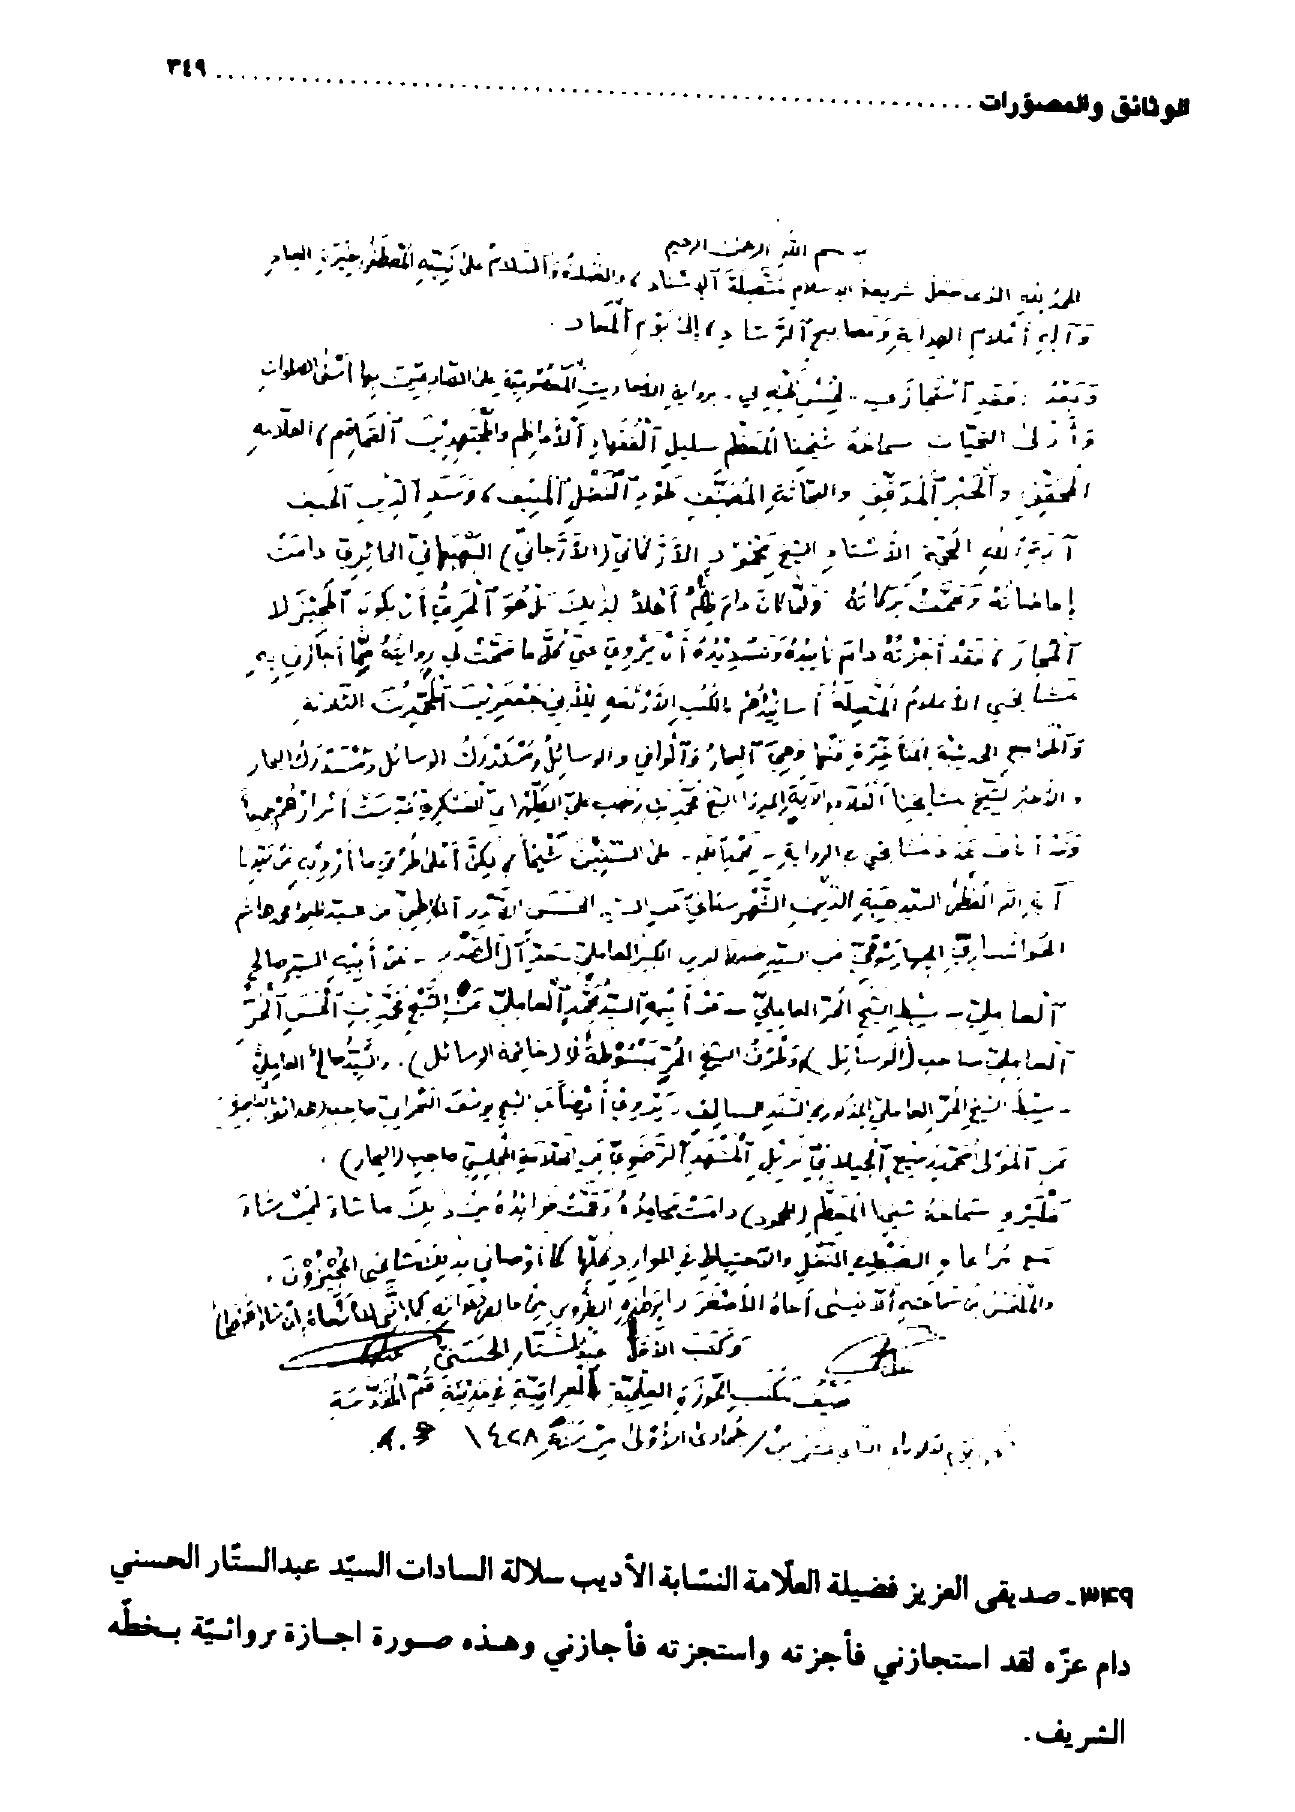 الوثائق والمصوّرات ........ ٣٤٩
بسم الله الرحمن الرحيم
الحمد لله الذي جعل شريعة الإسلام متّصلة الإسناد، والصلاة والسلام على نبيّه المصطفى خيرة العباد
وآله أعلام الهداية ومصابيح الرشاد، إلى يوم المعاد.
وبعد: فقد استجازني - لحسن ظنّه بي - برواية الأحاديث المعصومية على الصادعين بها أسنى الصلوات
وأزكى التحيّات سماحة شيخنا المعظّم سليل الفقهاء الأعاظم والمجتهدين القماقم، العلّامة
المحقّق والحبر المدقّق والبحّاثة المصنّف طود الفضل المنيف، وسند الدين الحنيف
آية الله الحجّة الأستاذ الشيخ محمود الأركاني (الأرّجاني) البهبهاني الحائري دامت
إفاضاته وعمّت بركاته ولمّا كان دام ظلّه أهلاً لذلك بل هو الحريّ أن يكون المجيز لا
المجاز، فقد أجزته دام تأييده وتسديده أن يروي عنّي كلّ ما صحّت لي روايته ممّا أجازني به
مشايخي الأعلام المتّصلة أسانيدهم بالكتب الأربعة للأبي جعفرين المحمّدين الثلاثة
والمجاميع الحديثية المتأخّرة عنها وهي البحار والوافي والوسائل ومستدرك الوسائل ومستدرك البحار
والأخير لشيخ مشايخنا العلّامة الآية الميرزا الشيخ محمّد بن رجب علي الطهراني العسكري قدّست أسرارهم جميعاً
وقد أناف عدد مشايخي بالرواية - بحمد الله - على الستّين شيخاً، لكنّ أعلى طرقي ما أرويه عن سيّدنا
آية الله العظمى السيد هبة الدين الشهرستاني عن السيد الحسن الصدر الكاظمي عن السيد الميرزا محمد هاشم
الخوانساري الجهارسوقي عن السيد صدر الدين الكبير العاملي - جدّ آل الصدر - عن أبيه السيّد صالح
العاملي - سبط الشيخ الحرّ العاملي - عن أبيه السيّد محمّد العاملي عن الشيخ محمّد بن الحسن الحرّ
العاملي صاحب (الوسائل) وطرق الشيخ الحرّ مبسوطة في (خاتمة الوسائل). والسيّد صالح العاملي
- سبط الشيخ الحرّ العاملي المذكور - يروي أيضاً عن الشيخ يوسف البحراني صاحب (الحدائق)
عن المولى محمّد رفيع الجيلاني نزيل المشهد الرضوي عن العلّامة المجلسي صاحب (البحار).
فليرو سماحة شيخنا المعظّم (المحمود) دامت محامده وعمّت فوائده من ذلك ما شاء لمن شاء
مع مراعاة الضبط في النقل والاحتياط في الموارد كلّها كما أوصاني بذلك مشايخي المجيزون.
والملتمس من سماحته ألّا ينسى أخاه الأصغر من صالح دعواته كما إنّي لا أنساه إن شاء الله
وكتب الأقلّ عبد الستّار الحسني
ضيف مكتب الحوزة العلمية العراقية في مدينة قم المقدّسة
يوم الثلاثاء الثاني عشر من جمادى الأولى من سنة ١٤٢٨ هـ
٣٤٩ـ صديقي العزيز فضيلة العلّامة النسّابة الأديب سلالة السادات السيّد عبدالستّار الحسني
دام عزّه لقد استجازني فأجزته واستجزته فأجازني وهذه صورة اجازة روائيّة بخطّه
الشريف.